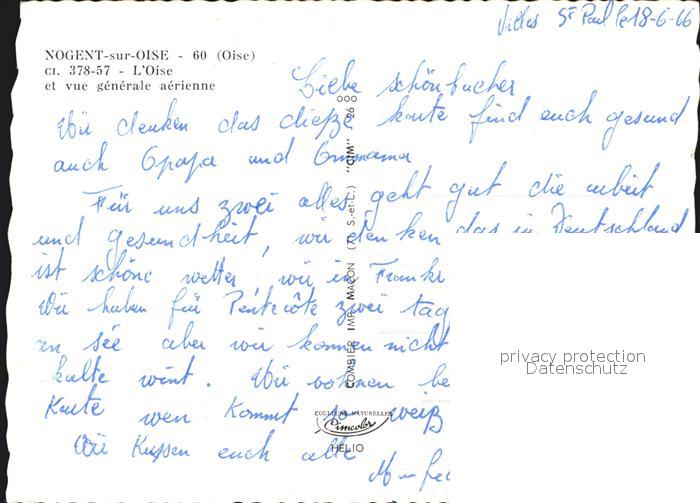 Villes St Paul le 18-6-66
NOGENT-sur-OISE - 60 (Oise)
Cl. 378-57 - L'Oise
et vue générale aérienne
Liebe schönbucher
Wir denken das dieße karte find euch gesund
auch Opapa und Omama
Für uns zwei alles geht gut die arbeit
und gesundheit, wir denken das in Deutschland
ist schöne wetter wir in Frankr
Wir haben für Pentecôte zwei tag
an sée aber wir konnen nicht
kalte wint. Wir wohnen be
Karte wen Kommt so weiß
Wir Kussen euch alle
COMBIER IMP. MACON (71 S.-et-L.) "CIM"
COULEURS NATURELLES
Cimcolor
HELIO
privacy protection
Datenschutz